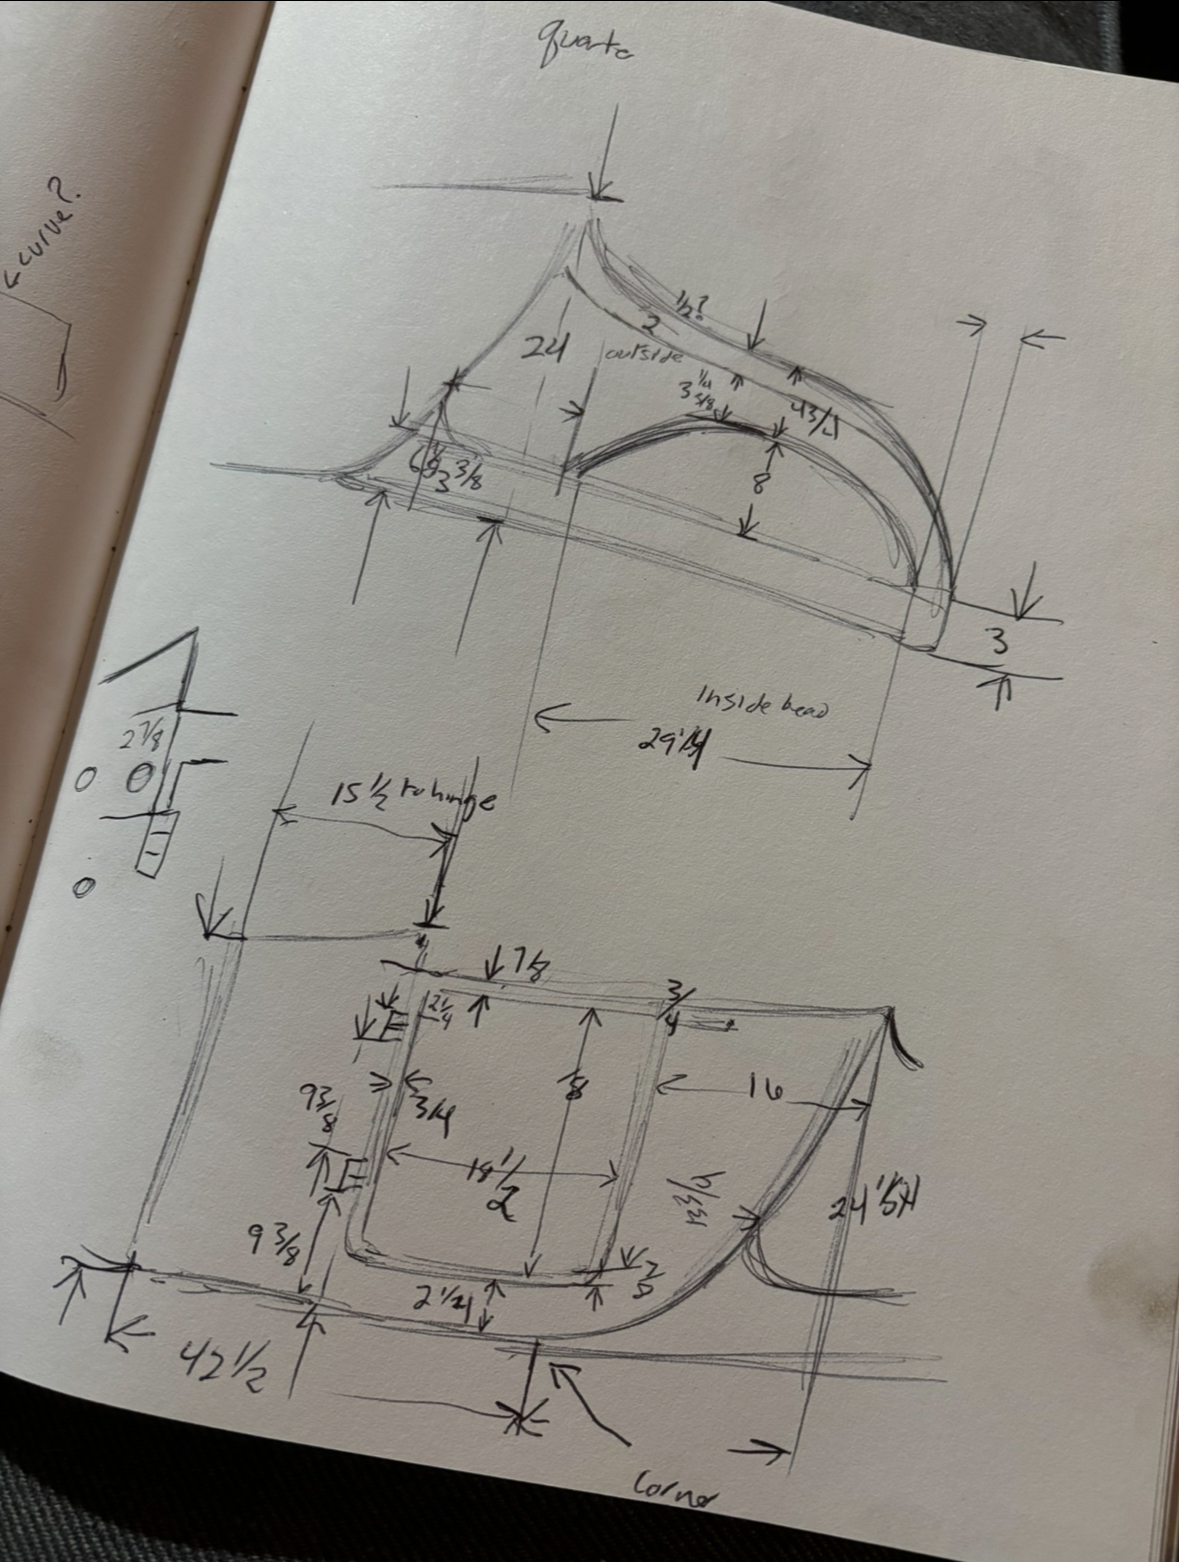 ← curve?
quarte
1/2?
2
24
outside
1/4
3 5/8
4 3/4
3 3/8
8
3
Inside bead
29 1/4
2 7/8
15 1/2 to hinge
7/8
2 1/4
3/4
3/4
16
9 3/8
18 1/2
9 3/8
2 1/4
42 1/2
Corner